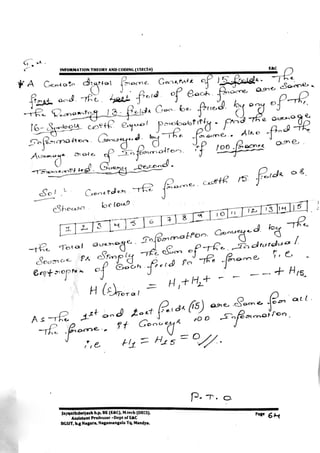 INFORMATION THEORY AND CODING (15EC54) E&C
* A Certain digital frame Consists of 15 fields. The
first and the last field of each frame are same.
The Remaining 13 fields Can be filled by any of the
16-Symbols with equal probability. Find the average
Information Conveyed by the frame. Also find the
Average rate of Information if 100 frames are
Transmitted Every Second.
Sol: Consider the frame with 15 fields as
Shown below
1 2 3 4 5 6 7 8 9 10 11 12 13 14 15
The Total average Information Conveyed by the
Source is Simply the Sum of the Individual
Entropies of Each field in the frame i.e
H(s)Total = H1 + H2 + - - - - + H15
As the 1st and last fields (15) are Same for all
the frame. It Conveys no Information.
i.e H1 = H15 = 0//.
P.T.O
Assistant Professor - Dept of E&C
BGSIT, b.g Nagara, Nagamangala Tq, Mandya.
Page 64